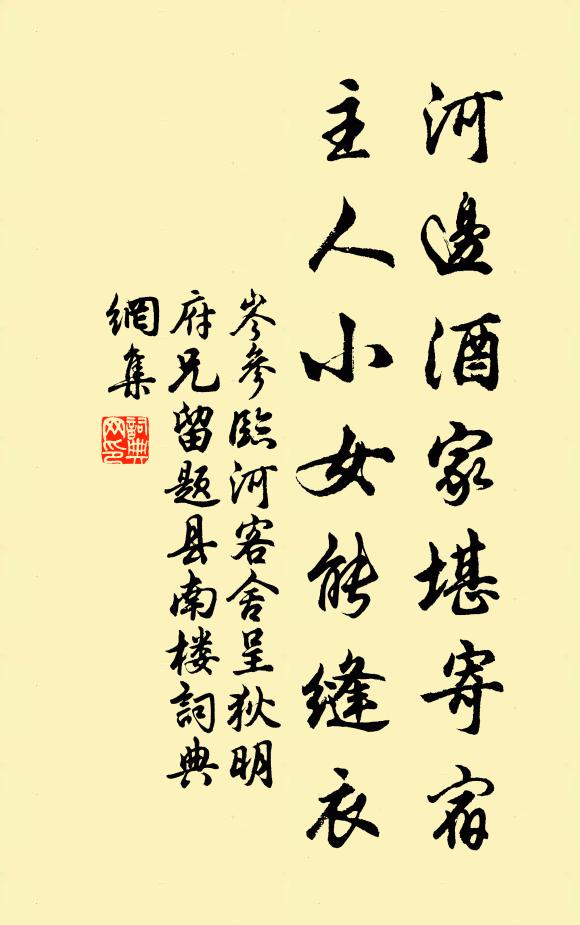 河邊酒家堪寄宿
主人小女能縫衣
岑參臨河客舍呈狄明
府兄留題县南楼詞典
網集
詞典
网印